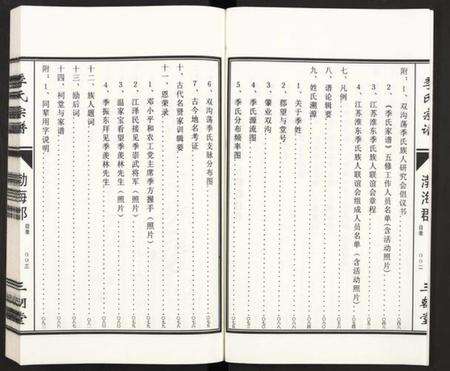 季氏宗谱
渤海郡
目录
三朝堂
附：1、双沟荡季氏族人研究会倡议书
2、《季氏家谱》五修工作人员名单(含活动照片)
3、江苏淮东季氏族人联谊会章程
4、江苏淮东季氏族人联谊会组成人员名单(含活动照片)
七、凡例
八、谱论辑要
九、姓氏溯源
1、关于季姓
2、郡望与堂号
3、肇业双沟
4、季氏源流图
5、季氏分布频率图
6、双沟荡季氏支脉分布图
7、古今地名考证
十、古代名贤家训辑要
十一、恩荣录
1、邓小平和农工党主席季方握手(照片)
2、江泽民接见季崇武将军(照片)
3、温家宝看望季羡林先生(照片)
4、季振东拜见季羡林先生
十二、族人题词
十三、励后词
十四、祠堂与家谱
附：1、同辈用字说明
季氏宗谱
渤海郡
目录
三朝堂